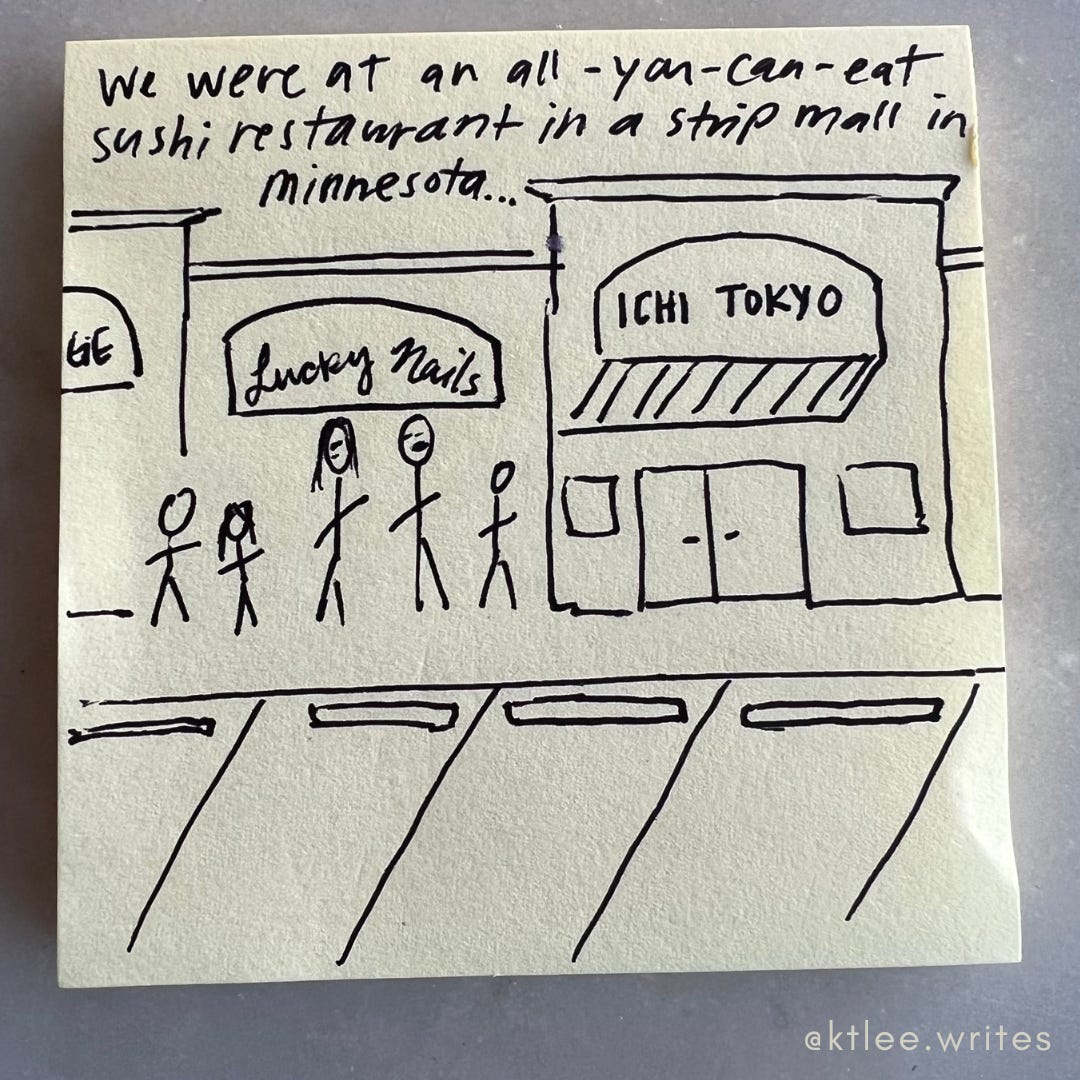 We were at an all-you-can-eat
sushi restaurant in a strip mall in
minnesota...
ICHI TOKYO
GE
Lucky Nails
@ktlee.writes